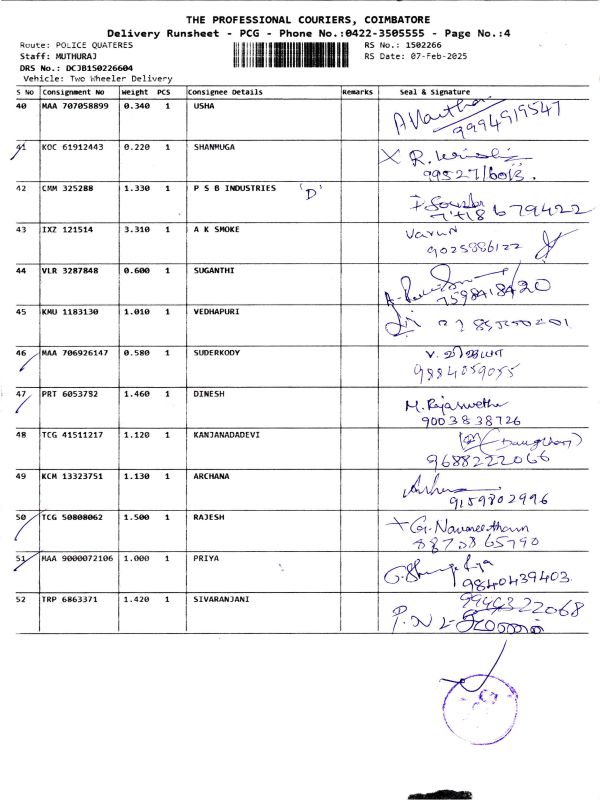 THE PROFESSIONAL COURIERS, COIMBATORE
Delivery Runsheet - PCG - Phone No.:0422-3505555 - Page No.:4
Route: POLICE QUATERES RS No.: 1502266
Staff: MUTHURAJ RS Date: 07-Feb-2025
DRS No.: DCJB150226604
Vehicle: Two Wheeler Delivery
S No Consignment No Weight PCS Consignee Details Remarks Seal & Signature
40 MAA 707058899 0.340 1 USHA
9994919547
41 KOC 61912443 0.220 1 SHANMUGA
42 CMM 325288 1.330 1 P S B INDUSTRIES 'D'
43 IXZ 121514 3.310 1 A K SMOKE Varun
9025886122
44 VLR 3287848 0.600 1 SUGANTHI
7598418420
45 KMU 1183130 1.010 1 VEDHAPURI
46 MAA 706926147 0.580 1 SUDERKODY V. விஜயா
9884059055
47 PRT 6053792 1.460 1 DINESH M. Rajaswetha
9003838726
48 TCG 41511217 1.120 1 KANJANADADEVI (Daughter)
9688222066
49 KCM 13323751 1.130 1 ARCHANA
9159802996
50 TCG 50808062 1.500 1 RAJESH G. Navaneetham
8873865790
51 MAA 9000072106 1.000 1 PRIYA
9840439403
52 TRP 6863371 1.420 1 SIVARANJANI